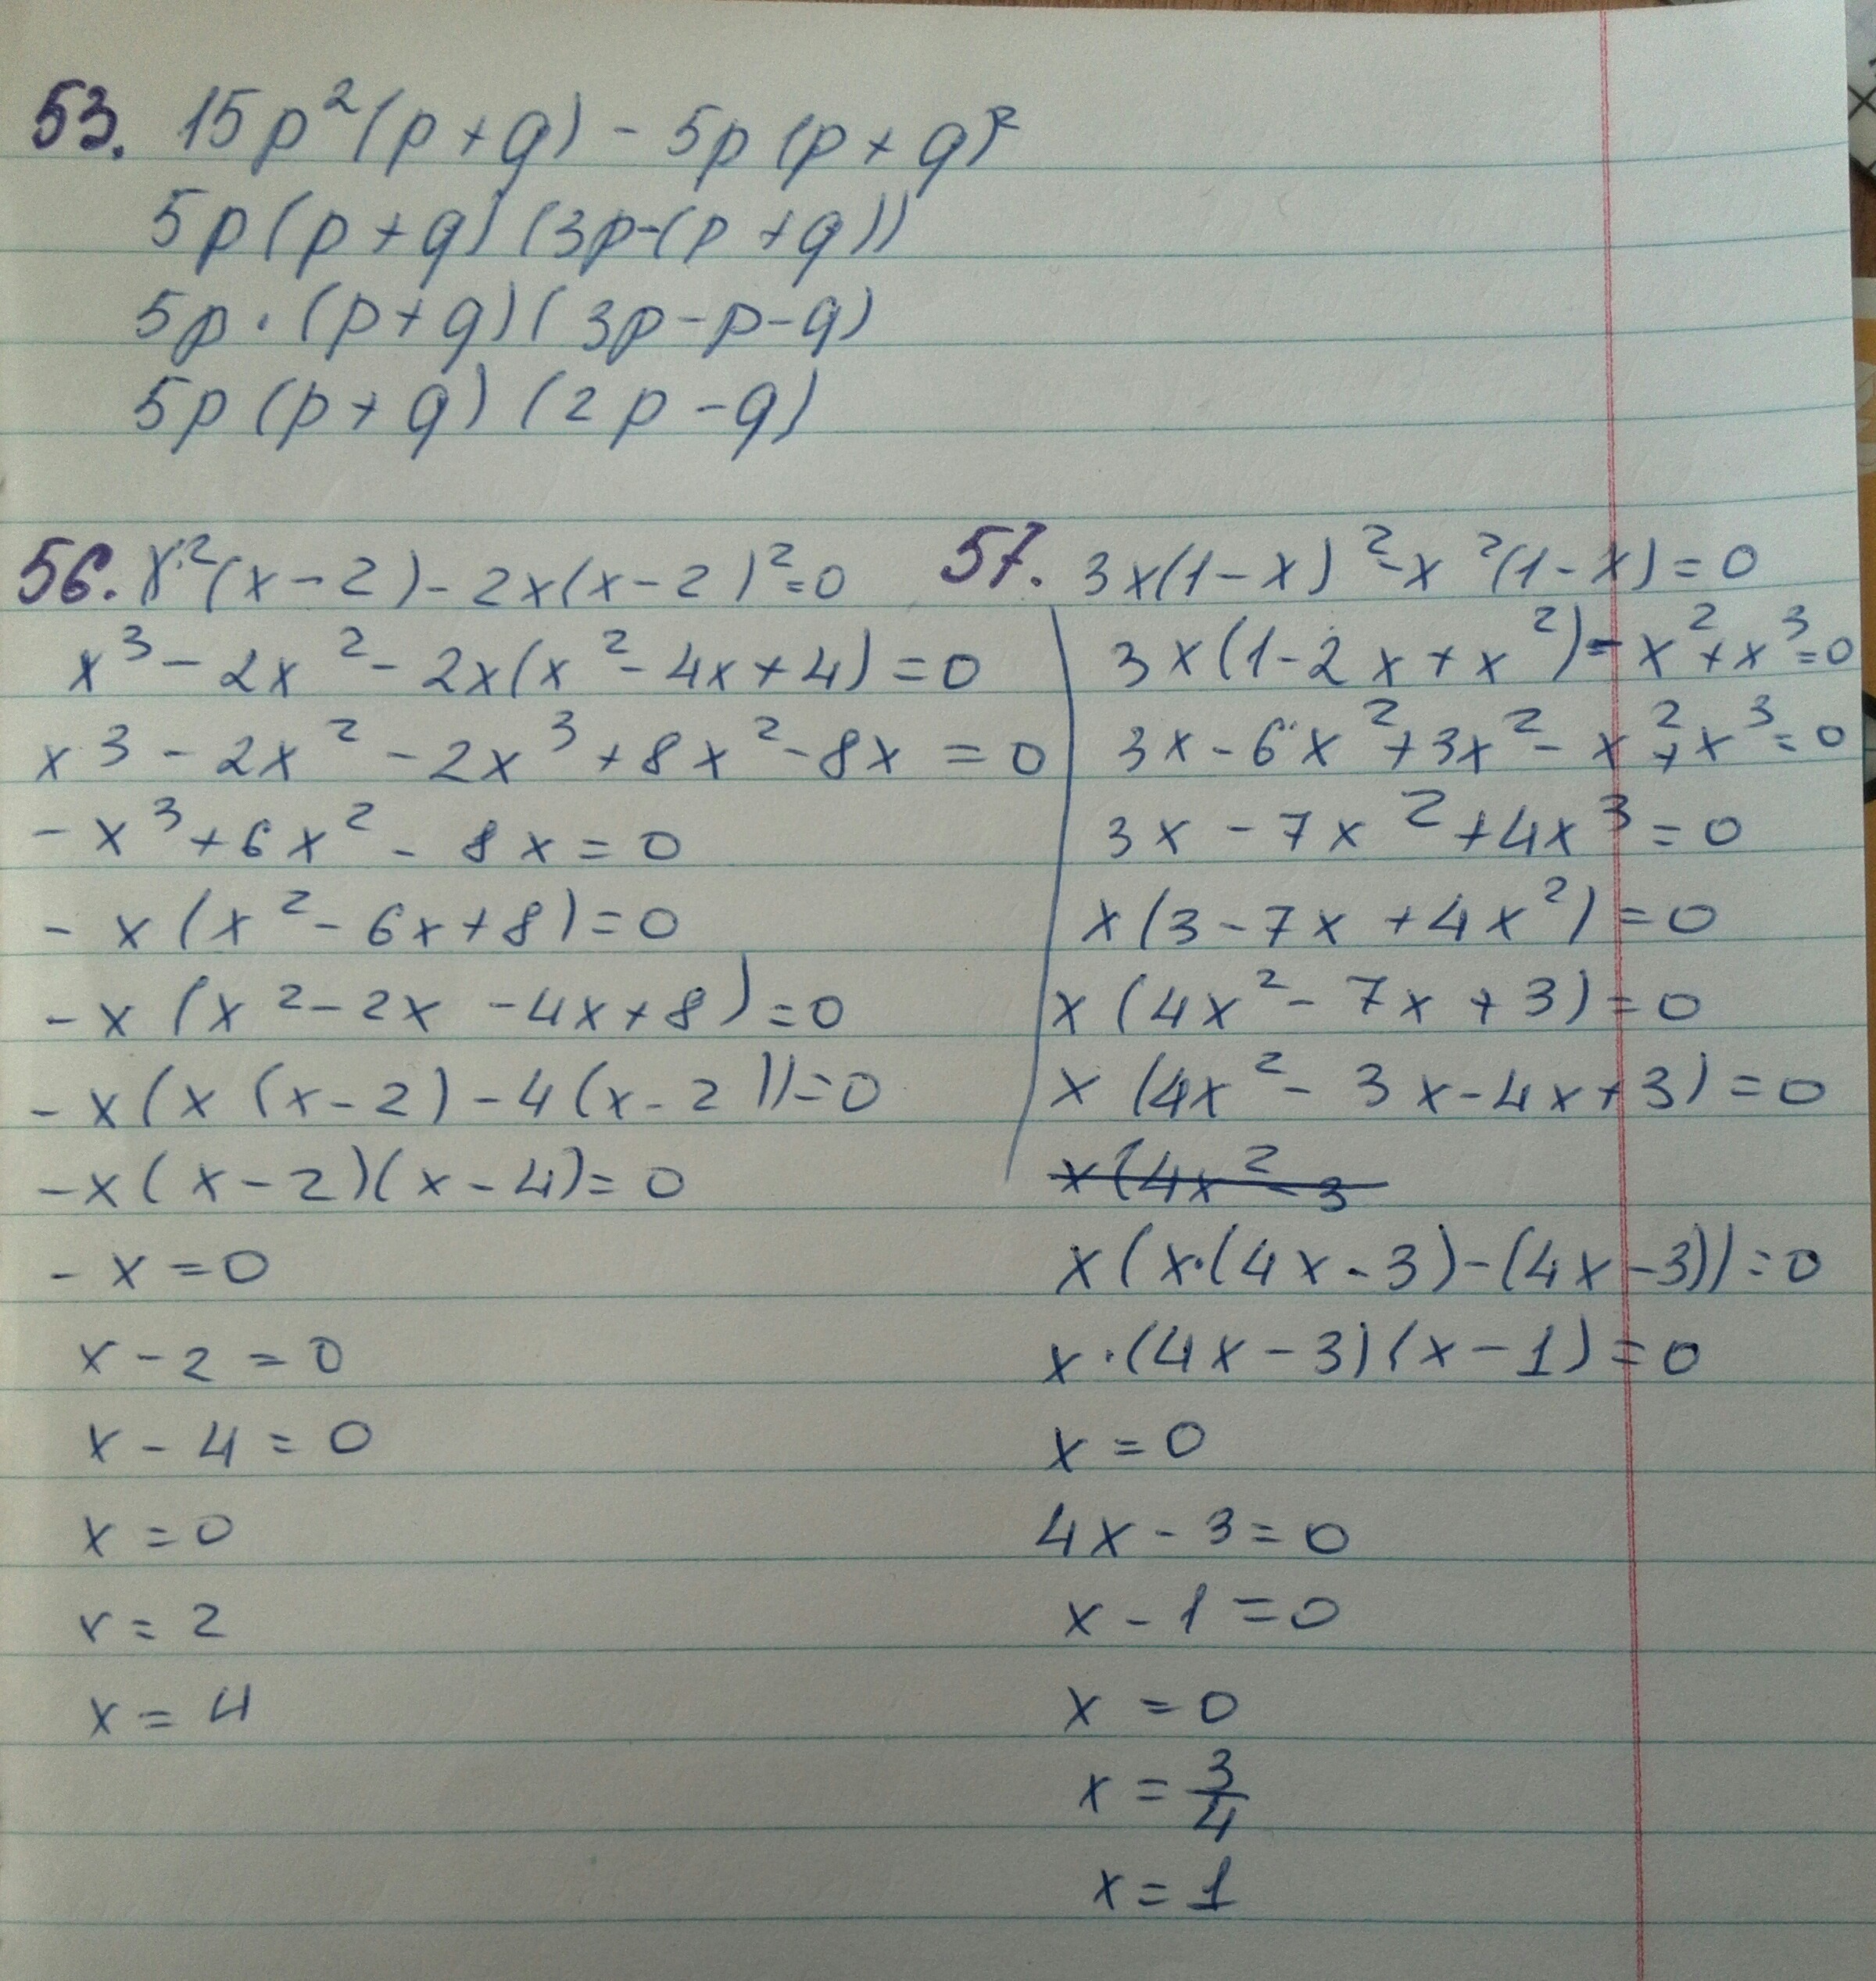 53. 15p²(p+q) - 5p(p+q)²
5p(p+q)(3p-(p+q))
5p·(p+q)(3p-p-q)
5p(p+q)(2p-q)
56. x²(x-2)-2x(x-2)²=0
x³-2x²-2x(x²-4x+4)=0
x³-2x²-2x³+8x²-8x=0
-x³+6x²-8x=0
-x(x²-6x+8)=0
-x(x²-2x-4x+8)=0
-x(x(x-2)-4(x-2))=0
-x(x-2)(x-4)=0
-x=0
x-2=0
x-4=0
x=0
x=2
x=4
57. 3x(1-x)²-x²(1-x)=0
3x(1-2x+x²)-x²+x³=0
3x-6x²+3x²-x²+x³=0
3x-7x²+4x³=0
x(3-7x+4x²)=0
x(4x²-7x+3)=0
x(4x²-3x-4x+3)=0
x(4x²-3
x(x·(4x-3)-(4x-3))=0
x·(4x-3)(x-1)=0
x=0
4x-3=0
x-1=0
x=0
x=3/4
x=1